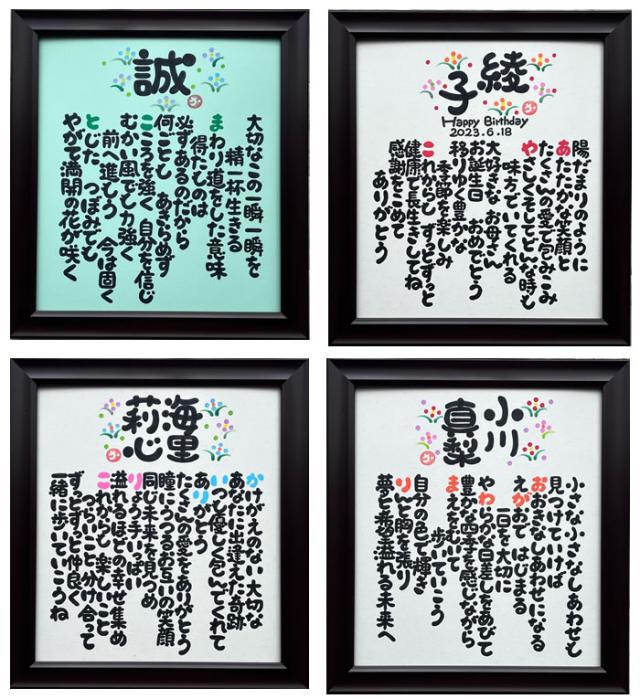 誠
大切なこの一瞬一瞬を
精一杯生きる
まわり道をした意味
得たものは
必ずあるのだから
何ごとも あきらめず
こころを強く 自分を信じ
むかい風でも力強く
前へ進もう 今は固く
とじた つぼみでも
やがて満開の花が咲く
綾子
Happy Birthday
2023.6.18
陽だまりのように
あたたかな笑顔と
たくさんの愛で包みこみ
やさしくそしてどんな時も
味方でいてくれる
大好きな お母さん
お誕生日 おめでとう
移りゆく豊かな
季節を楽しみ
これからも ずっとずっと
健康で長生きしてね
感謝をこめて
ありがとう
海里
莉心
かけがえのない 大切な
あなたに出逢えた奇跡
いつも優しく包んでくれて
ありがとう
たくさんの愛をありがとう
瞳にうつるお互いの笑顔
同じ未来を見つめ
りょう手いっぱい
溢れるほどの幸せ集め
これからも 楽しいこと
つらいこと分け合って
ずっとずっと仲良く
一緒に歩いていこうね
小川
真梨
小さな小さなしあわせも
見つけていけば
おおきなしあわせになる
えがおで はじまる
一日を大切に
やわらかな日差しをあびて
豊かな四季を感じながら
まえをむいて
歩いていこう
自分の色で輝き
りんと胸を張り
夢と希望溢れる未来へ